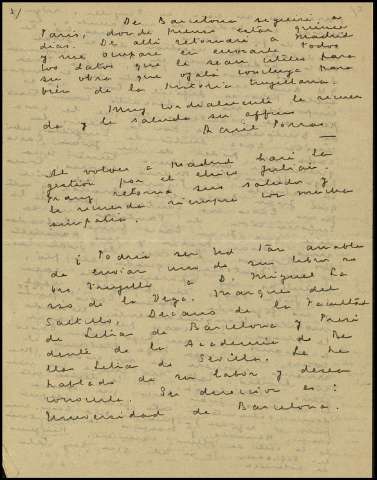 2/
De Barcelona seguiré a
Paris, donde pienso estar quince
dias. De alli retornaré a Madrid
y me ocuparé en enviarle todos
los datos que le sean útiles para
su obra que ojalá concluya para
bien de la historia trujillana.
Muy cordialmente le recuer
da y le saluda su affmo
Raul Porras
Al volver a Madrid haré la
gestión por el
retorna sus saludos y
le recuerda siempre con mucha
simpatia.
¿Podria ser Ud tan amable
de enviar uno de sus libros so
bre Trujillo a D. Miguel La
sso de la Vega, Marqués del
Saltillo, Decano de la Facultad
de Letras de Barcelona y Presi
dente de la Academia de Be
llas Letras de Sevilla. Le he
hablado de su labor y desea
conocerla. Su dirección es:
Universidad de Barcelona.